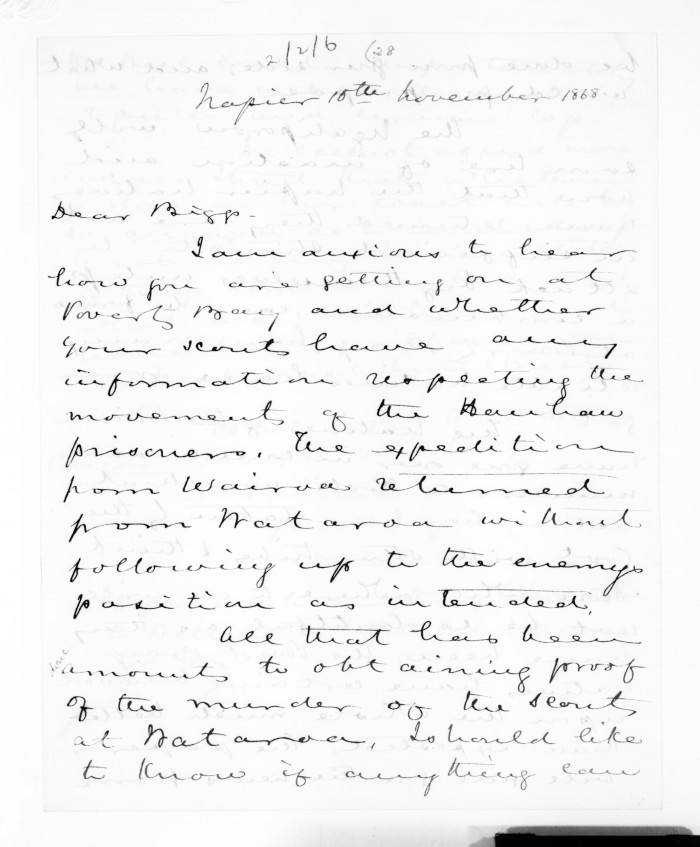 2/2/6 (28
Napier 10th November 1868
Dear Biggs.
I am anxious to hear
how you are getting on at
Poverty Bay and whether
your scouts have any
information respecting the
movements of the Hauhau
prisoners. The expedition
from Wairoa returned
from Wataroa without
following up to the enemys
position as intended.
All that has been
done
amounts to obtaining proof
of the murder of the scouts
at Wataroa. I should like
to know if anything can